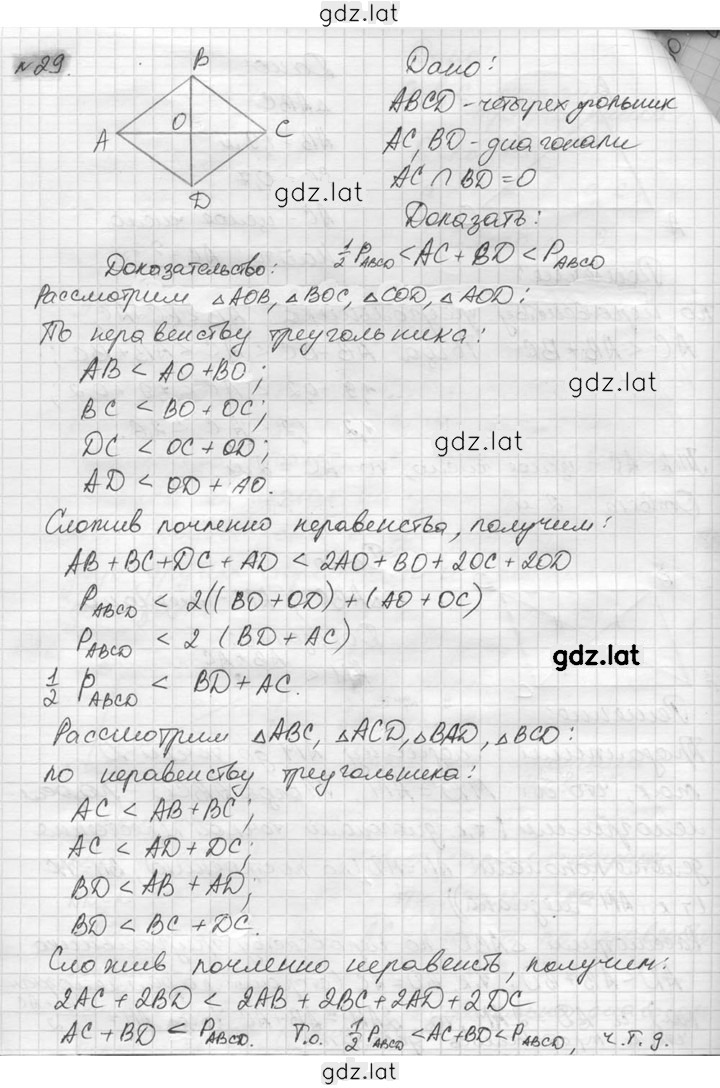 gdz.lat
№29.
B
O
A
C
D
Дано:
ABCD - четырехугольник
AC, BD - диагонали
AC ∩ BD = O
gdz.lat
Доказать:
½ P_ABCD < AC + BD < P_ABCD
Доказательство:
Рассмотрим △AOB, △BOC, △COD, △AOD:
По неравенству треугольника:
AB < AO + BO;
BC < BO + OC;
gdz.lat
DC < OC + OD;
gdz.lat
AD < OD + AO.
Сложив почленно неравенства, получим:
AB + BC + DC + AD < 2AO + BO + 2OC + 2OD
P_ABCD < 2((BO + OD) + (AO + OC)
P_ABCD < 2 (BD + AC)
gdz.lat
½ P_ABCD < BD + AC.
Рассмотрим △ABC, △ACD, △BAD, △BCD:
по неравенству треугольника:
AC < AB + BC;
AC < AD + DC;
BD < AB + AD;
BD < BC + DC.
Сложив почленно неравенств, получим:
2AC + 2BD < 2AB + 2BC + 2AD + 2DC
AC + BD < P_ABCD. Т.о. ½ P_ABCD < AC + BD < P_ABCD, ч.т.д.
gdz.lat